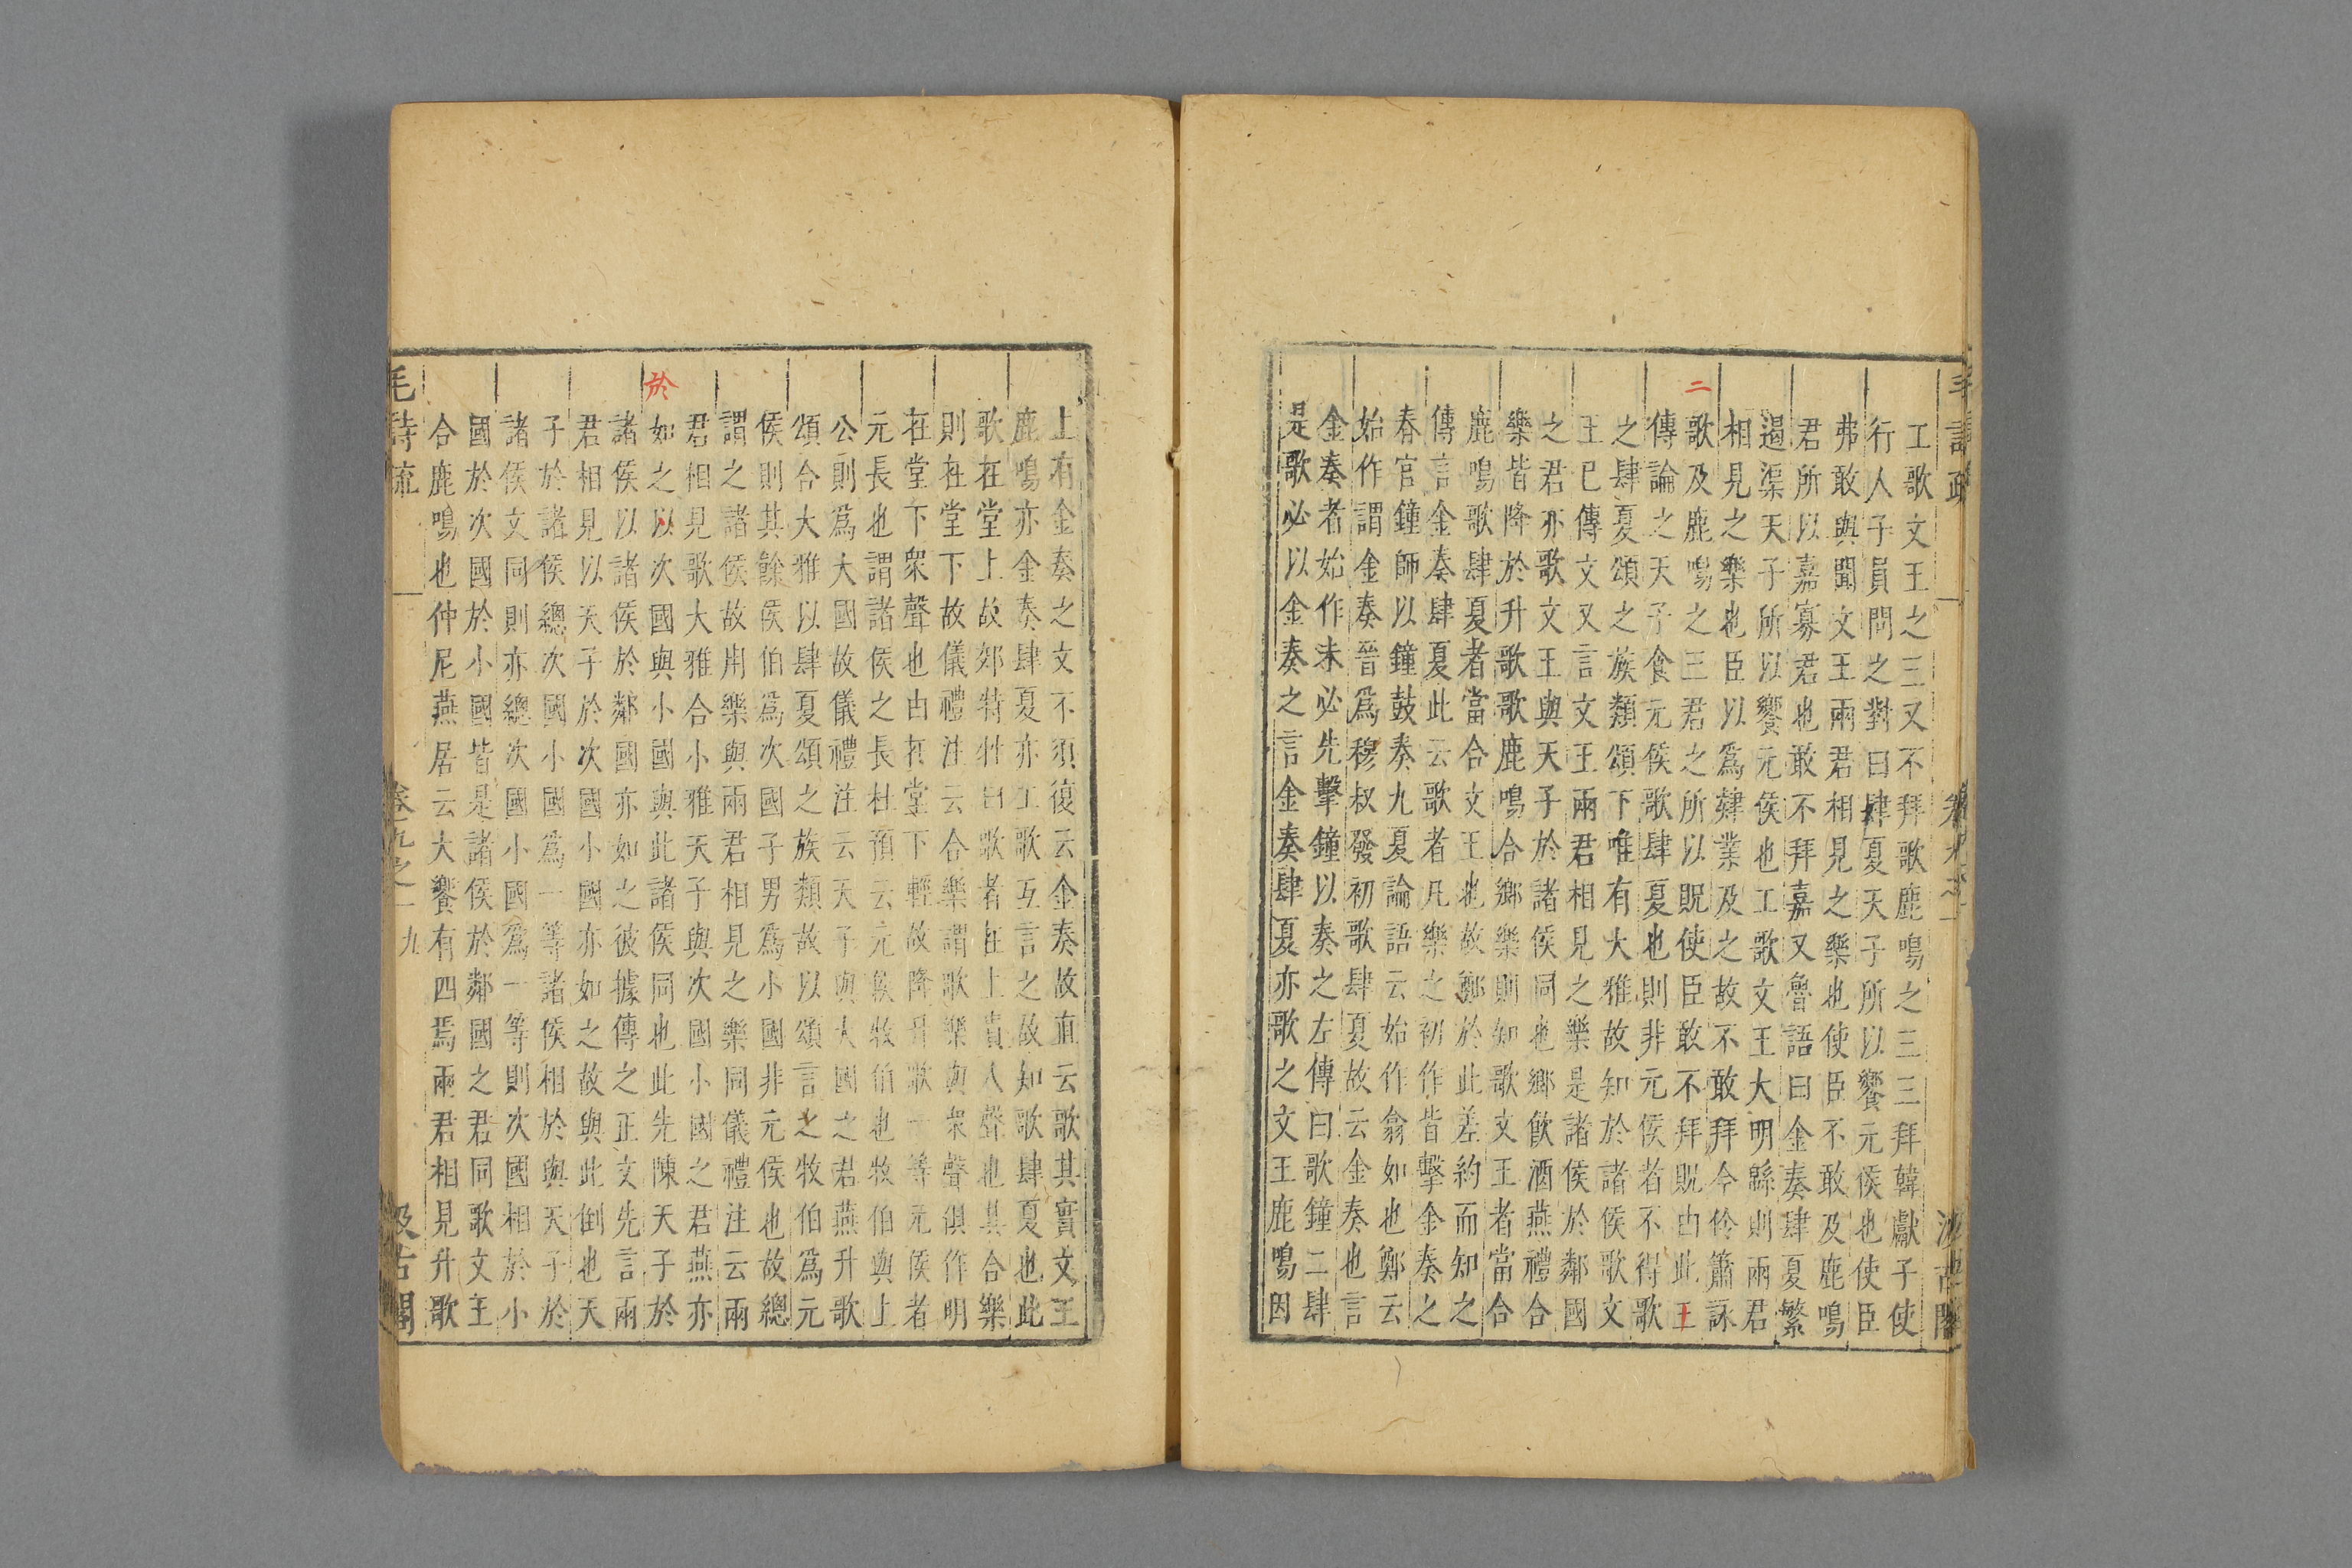 毛詩疏
卷九之一
汲古閣
工歌文王之三又不拜歌鹿鳴之三三拜韓獻子使
行人子員問之對曰肆夏天子所以饗元侯也使臣
弗敢與聞文王兩君相見之樂也使臣不敢及鹿鳴
君所以嘉寡君也敢不拜嘉又魯語曰金奏肆夏繁
遏渠天子所以饗元侯也工歌文王大明緜則兩君
相見之樂也臣以為肄業及之故不敢拜今伶簫詠
二
歌及鹿鳴之三君之所以貺使臣敢不拜貺由此王
傳論之天子食元侯歌肆夏也則非元侯者不得歌
之肆夏頌之族類頌下唯有大雅故知於諸侯歌文
王已傳文又言文王兩君相見之樂是諸侯於鄰國
之君亦歌文王與天子於諸侯同也鄉飲酒燕禮合
樂皆降於升歌歌鹿鳴合鄉樂則知歌文王者當合
鹿鳴歌肆夏者當合文王也故鄭於此差約而知之
傳言金奏肆夏此云歌者凡樂之初作皆擊金奏之
春官鐘師以鐘鼓奏九夏論語云始作翕如也鄭云
始作謂金奏晉為穆叔發初歌肆夏故云金奏也言
金奏者始作未必先擊鐘以奏之左傳曰歌鐘二肆
是歌必以金奏之言金奏肆夏亦歌之文王鹿鳴因
上有金奏之文不須復云金奏故直云歌其實文王
鹿鳴亦金奏肆夏亦工歌互言之故知歌肆夏也此
歌在堂上故郊特牲曰歌者在上貴人聲也其合樂
則在堂下故儀禮注云合樂謂歌樂與衆聲俱作明
在堂下衆聲也由在堂下輕故降升歌一等元侯者
元長也謂諸侯之長杜預云元侯牧伯也牧伯與上
公則為大國故儀禮注云天子與大國之君燕升歌
頌合大雅以肆夏頌之族類故以頌言之牧伯為元
侯則其餘侯伯為次國子男為小國非元侯也故總
謂之諸侯故用樂與兩君相見之樂同儀禮注云兩
君相見歌大雅合小雅天子與次國小國之君燕亦
於
如之以次國與小國與此諸侯同也此先陳天子於
諸侯以諸侯於鄰國亦如之彼據傳之正文先言兩
君相見以天子於次國小國亦如之故與此倒也天
子於諸侯總次國小國為一等諸侯相於與天子於
諸侯文同則亦總次國小國為一等則次國相於小
國於次國於小國皆是諸侯於鄰國之君同歌文王
合鹿鳴也仲尼燕居云大饗有四焉兩君相見升歌
毛詩疏
卷九之一
九
汲古閣